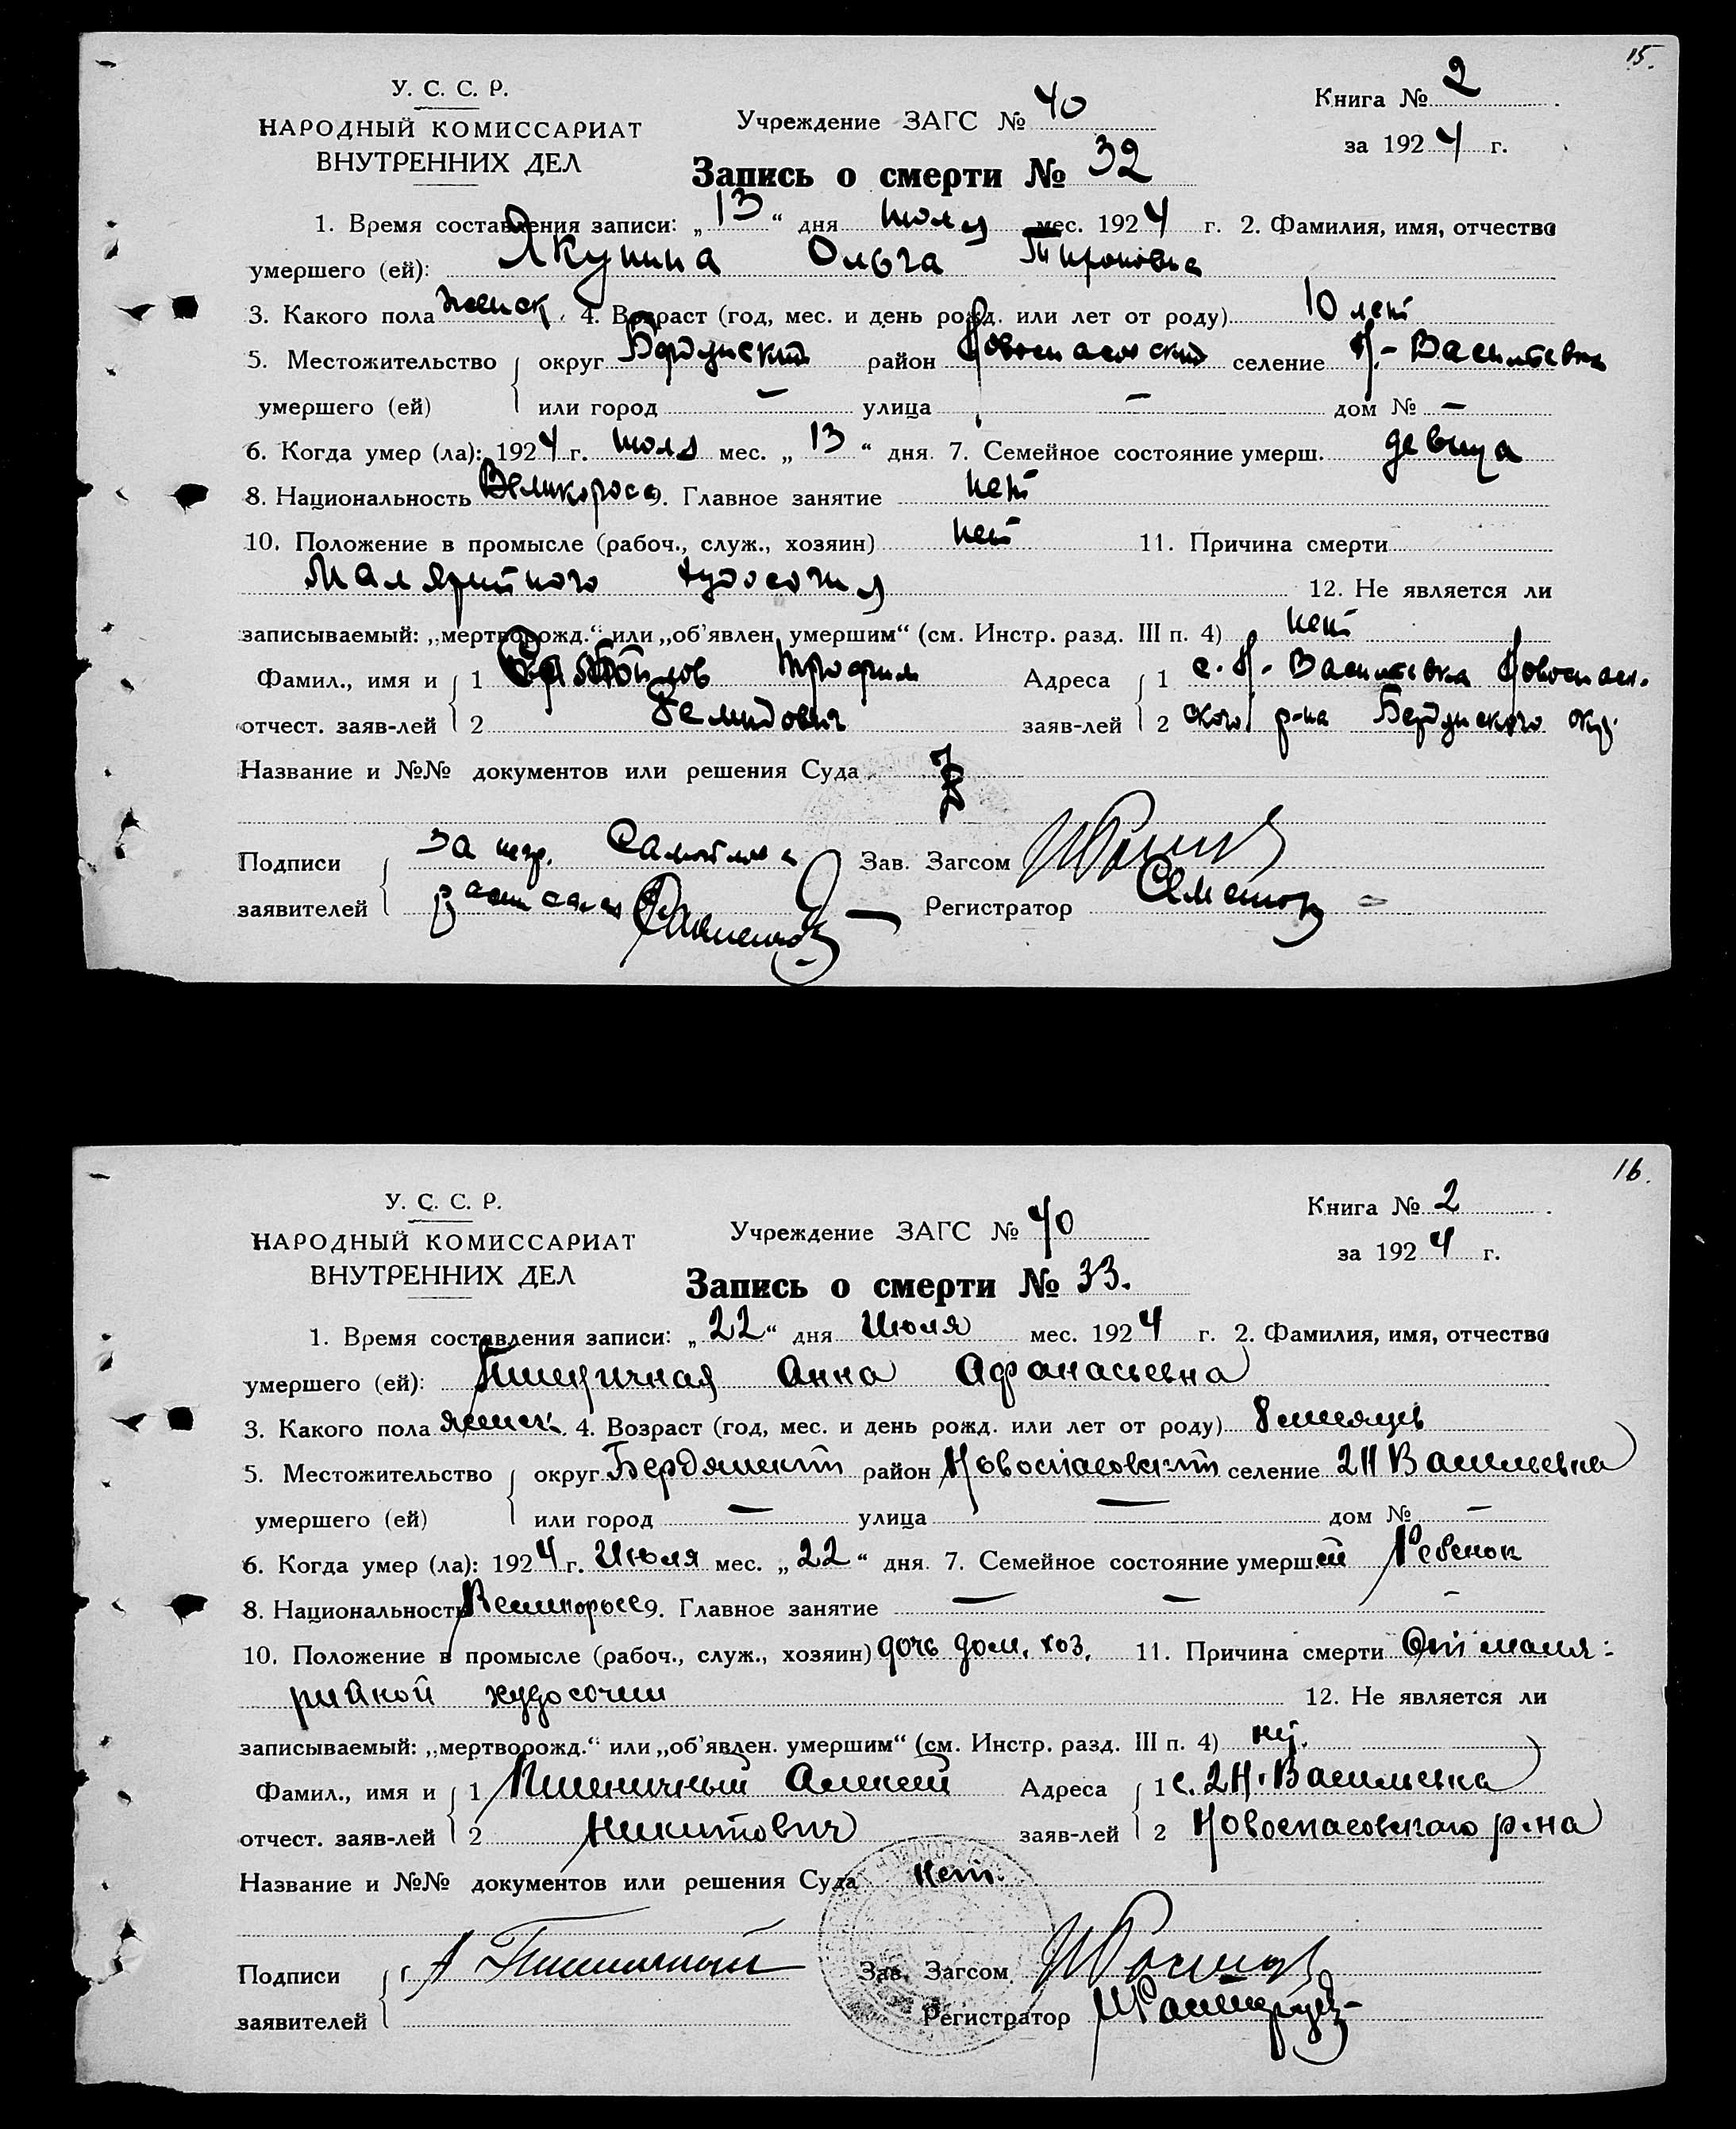 15.
У. С. С. Р.
НАРОДНЫЙ КОМИССАРИАТ
ВНУТРЕННИХ ДЕЛ
Учреждение ЗАГС № 40
Книга № 2
за 1924 г.
Запись о смерти № 32
1. Время составления записи: „13“ дня июля мес. 1924 г. 2. Фамилия, имя, отчество
умершего (ей): Якунина Ольга
3. Какого пола женск. 4. Возраст (год, мес. и день рожд. или лет от роду) 10 лет
5. Местожительство округ Бердянский район Новоспасовский селение Н.-Васильевка
умершего (ей) или город — улица — дом № —
6. Когда умер (ла): 1924 г. июля мес. „13“ дня. 7. Семейное состояние умерш. девица
8. Национальность Великоросс 9. Главное занятие нет
10. Положение в промысле (рабоч., служ., хозяин) нет 11. Причина смерти
Малярийного худосочия 12. Не является ли
записываемый: „мертворожд.“ или „об'явлен умершим“ (см. Инстр. разд. III п. 4) нет
Фамил., имя и 1 Самойлов Трофим Адреса 1 с. Н.-Васильевка Новоспасов-
отчест. заяв-лей 2 Демидович заяв-лей 2 ского р-на Бердянского окр.
Название и №№ документов или решения Суда
Подписи За негр. Самойлова Зав. Загсом
заявителей расписался Регистратор
16.
У. С. С. Р.
НАРОДНЫЙ КОМИССАРИАТ
ВНУТРЕННИХ ДЕЛ
Учреждение ЗАГС № 40
Книга № 2
за 1924 г.
Запись о смерти № 33.
1. Время составления записи: „22“ дня Июля мес. 1924 г. 2. Фамилия, имя, отчество
умершего (ей): Пшеничная Анна Афанасьевна
3. Какого пола женск. 4. Возраст (год, мес. и день рожд. или лет от роду) 8 месяцев
5. Местожительство округ Бердянский район Новоспасовский селение 2 Н Васильевка
умершего (ей) или город — улица — дом № —
6. Когда умер (ла): 1924 г. Июля мес. „22“ дня. 7. Семейное состояние умерш.ей Ребенок
8. Национальность Великоросс 9. Главное занятие — — —
10. Положение в промысле (рабоч., служ., хозяин) дочь дом. хоз. 11. Причина смерти От маля:
рийной худосочии 12. Не является ли
записываемый: „мертворожд.“ или „об'явлен. умершим“ (см. Инстр. разд. III п. 4)
Фамил., имя и 1 Пшеничный Алексей Адреса 1 с. 2 Н. Васильевка
отчест. заяв-лей 2 Никитович заяв-лей 2 Новоспасовского р-на
Название и №№ документов или решения Суда нет.
Подписи А Пшеничный Зав. Загсом
заявителей Регистратор